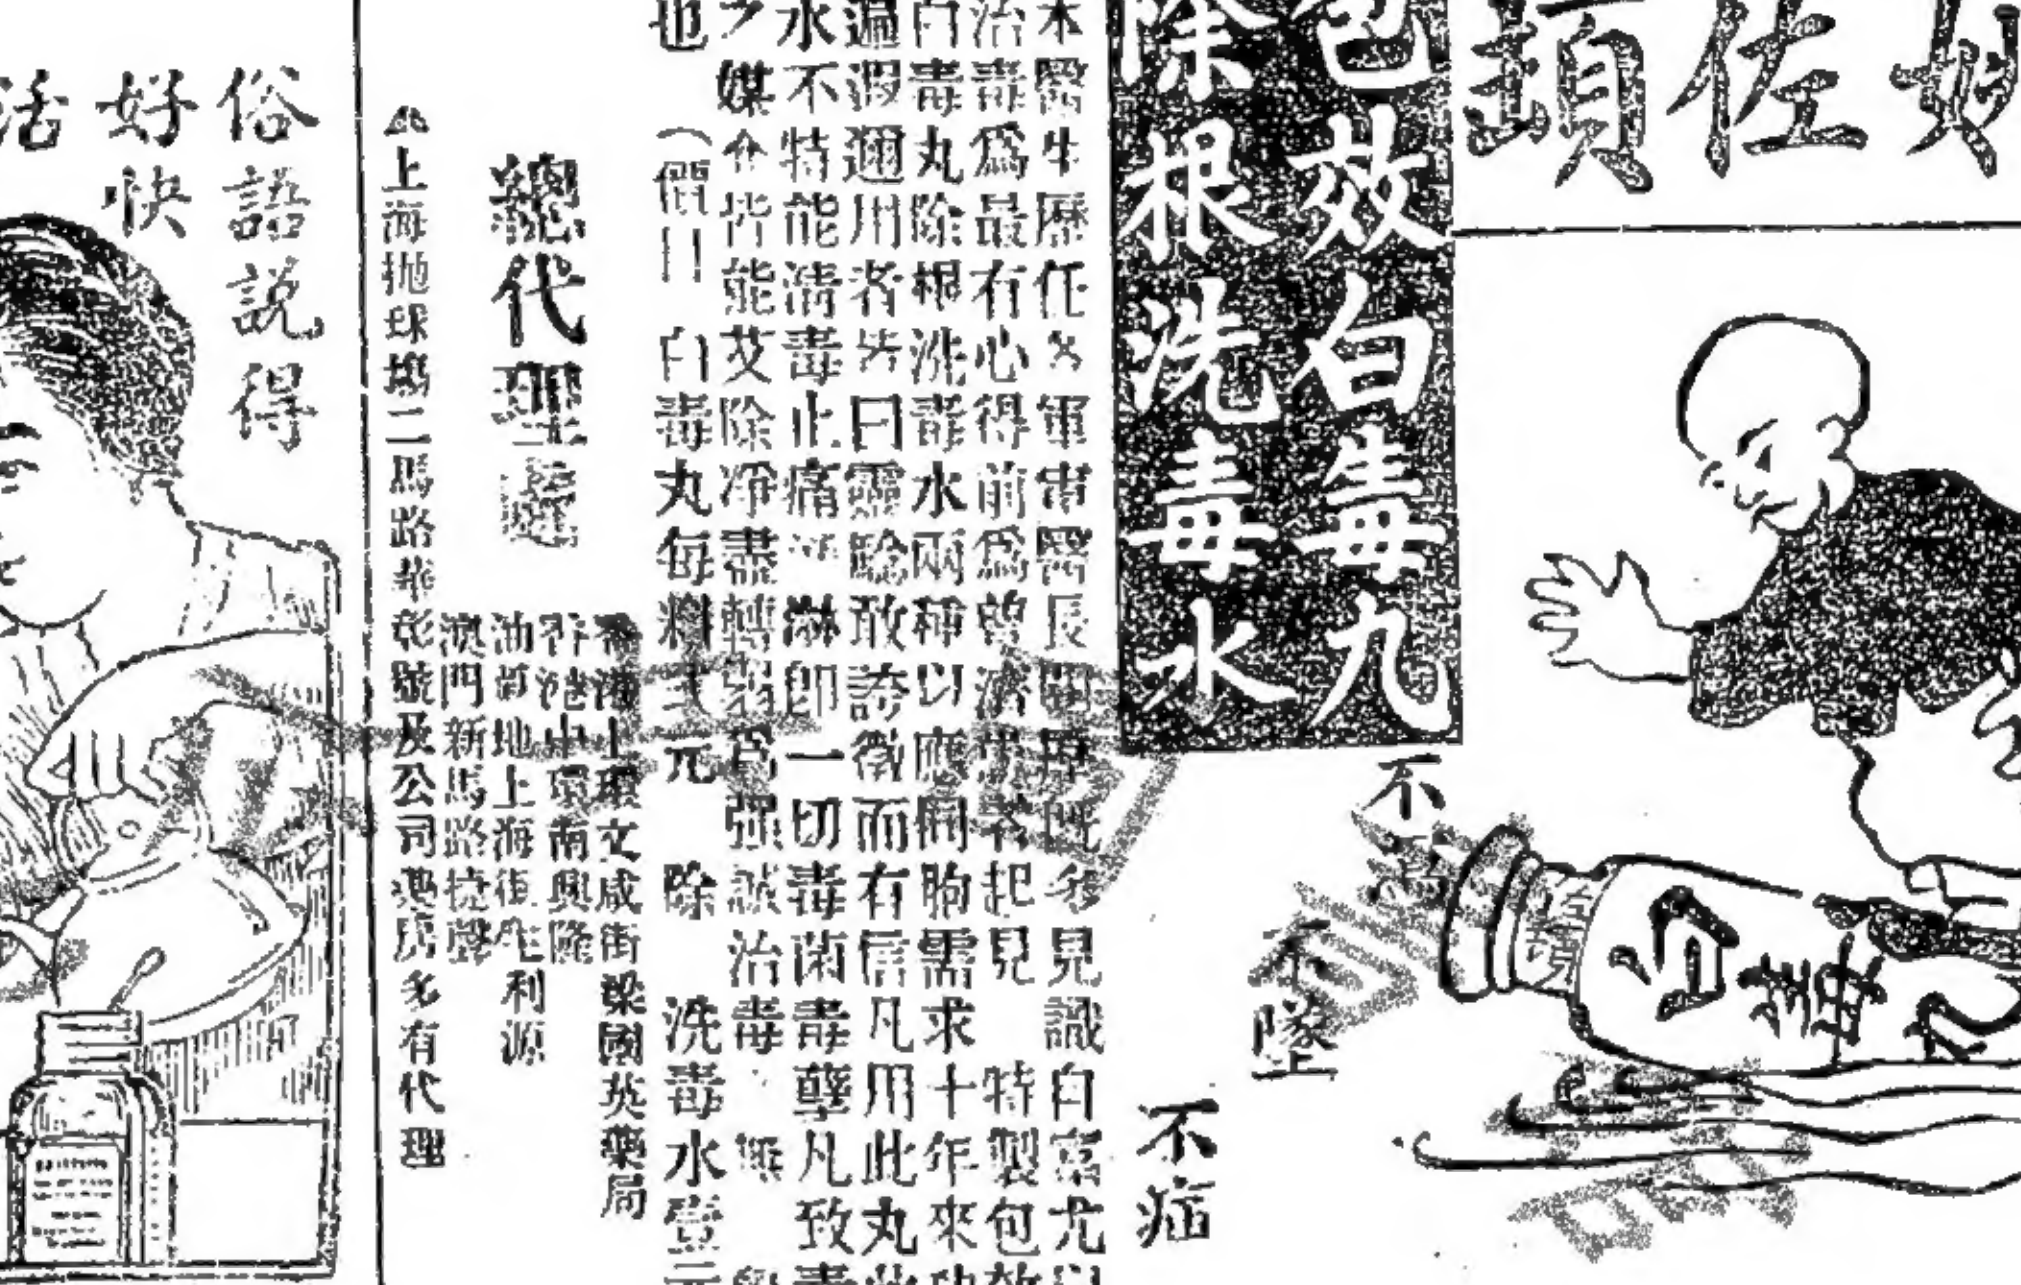 好佐頭
包效白毒丸
除根洗毒水
不痛
不墜
不痂
木醫生歷任各軍軍醫長閱歷既多見識自富尤以
治毒爲最有心得前爲救濟患者起見 特製包效
白毒丸除根洗毒水兩種以應同胞需求十年來功
遍遐邇用者皆曰靈驗敢誇徵而有信凡用此丸此
水不特能淸毒止痛 淋即一切毒菌毒孽凡致毒
之媒介皆能艾除凈盡轉弱爲强誠治毒 無
也 (價目 白毒丸每料弍元 除 洗毒水壹元
總代理處
香港上環文咸街梁國英藥局
香港中環南興隆
油蔴地上海街生利源
澳門新馬路捷聲
上海拋球塲二馬路華彰號及公司藥房多有代理
俗語説得
好快
活